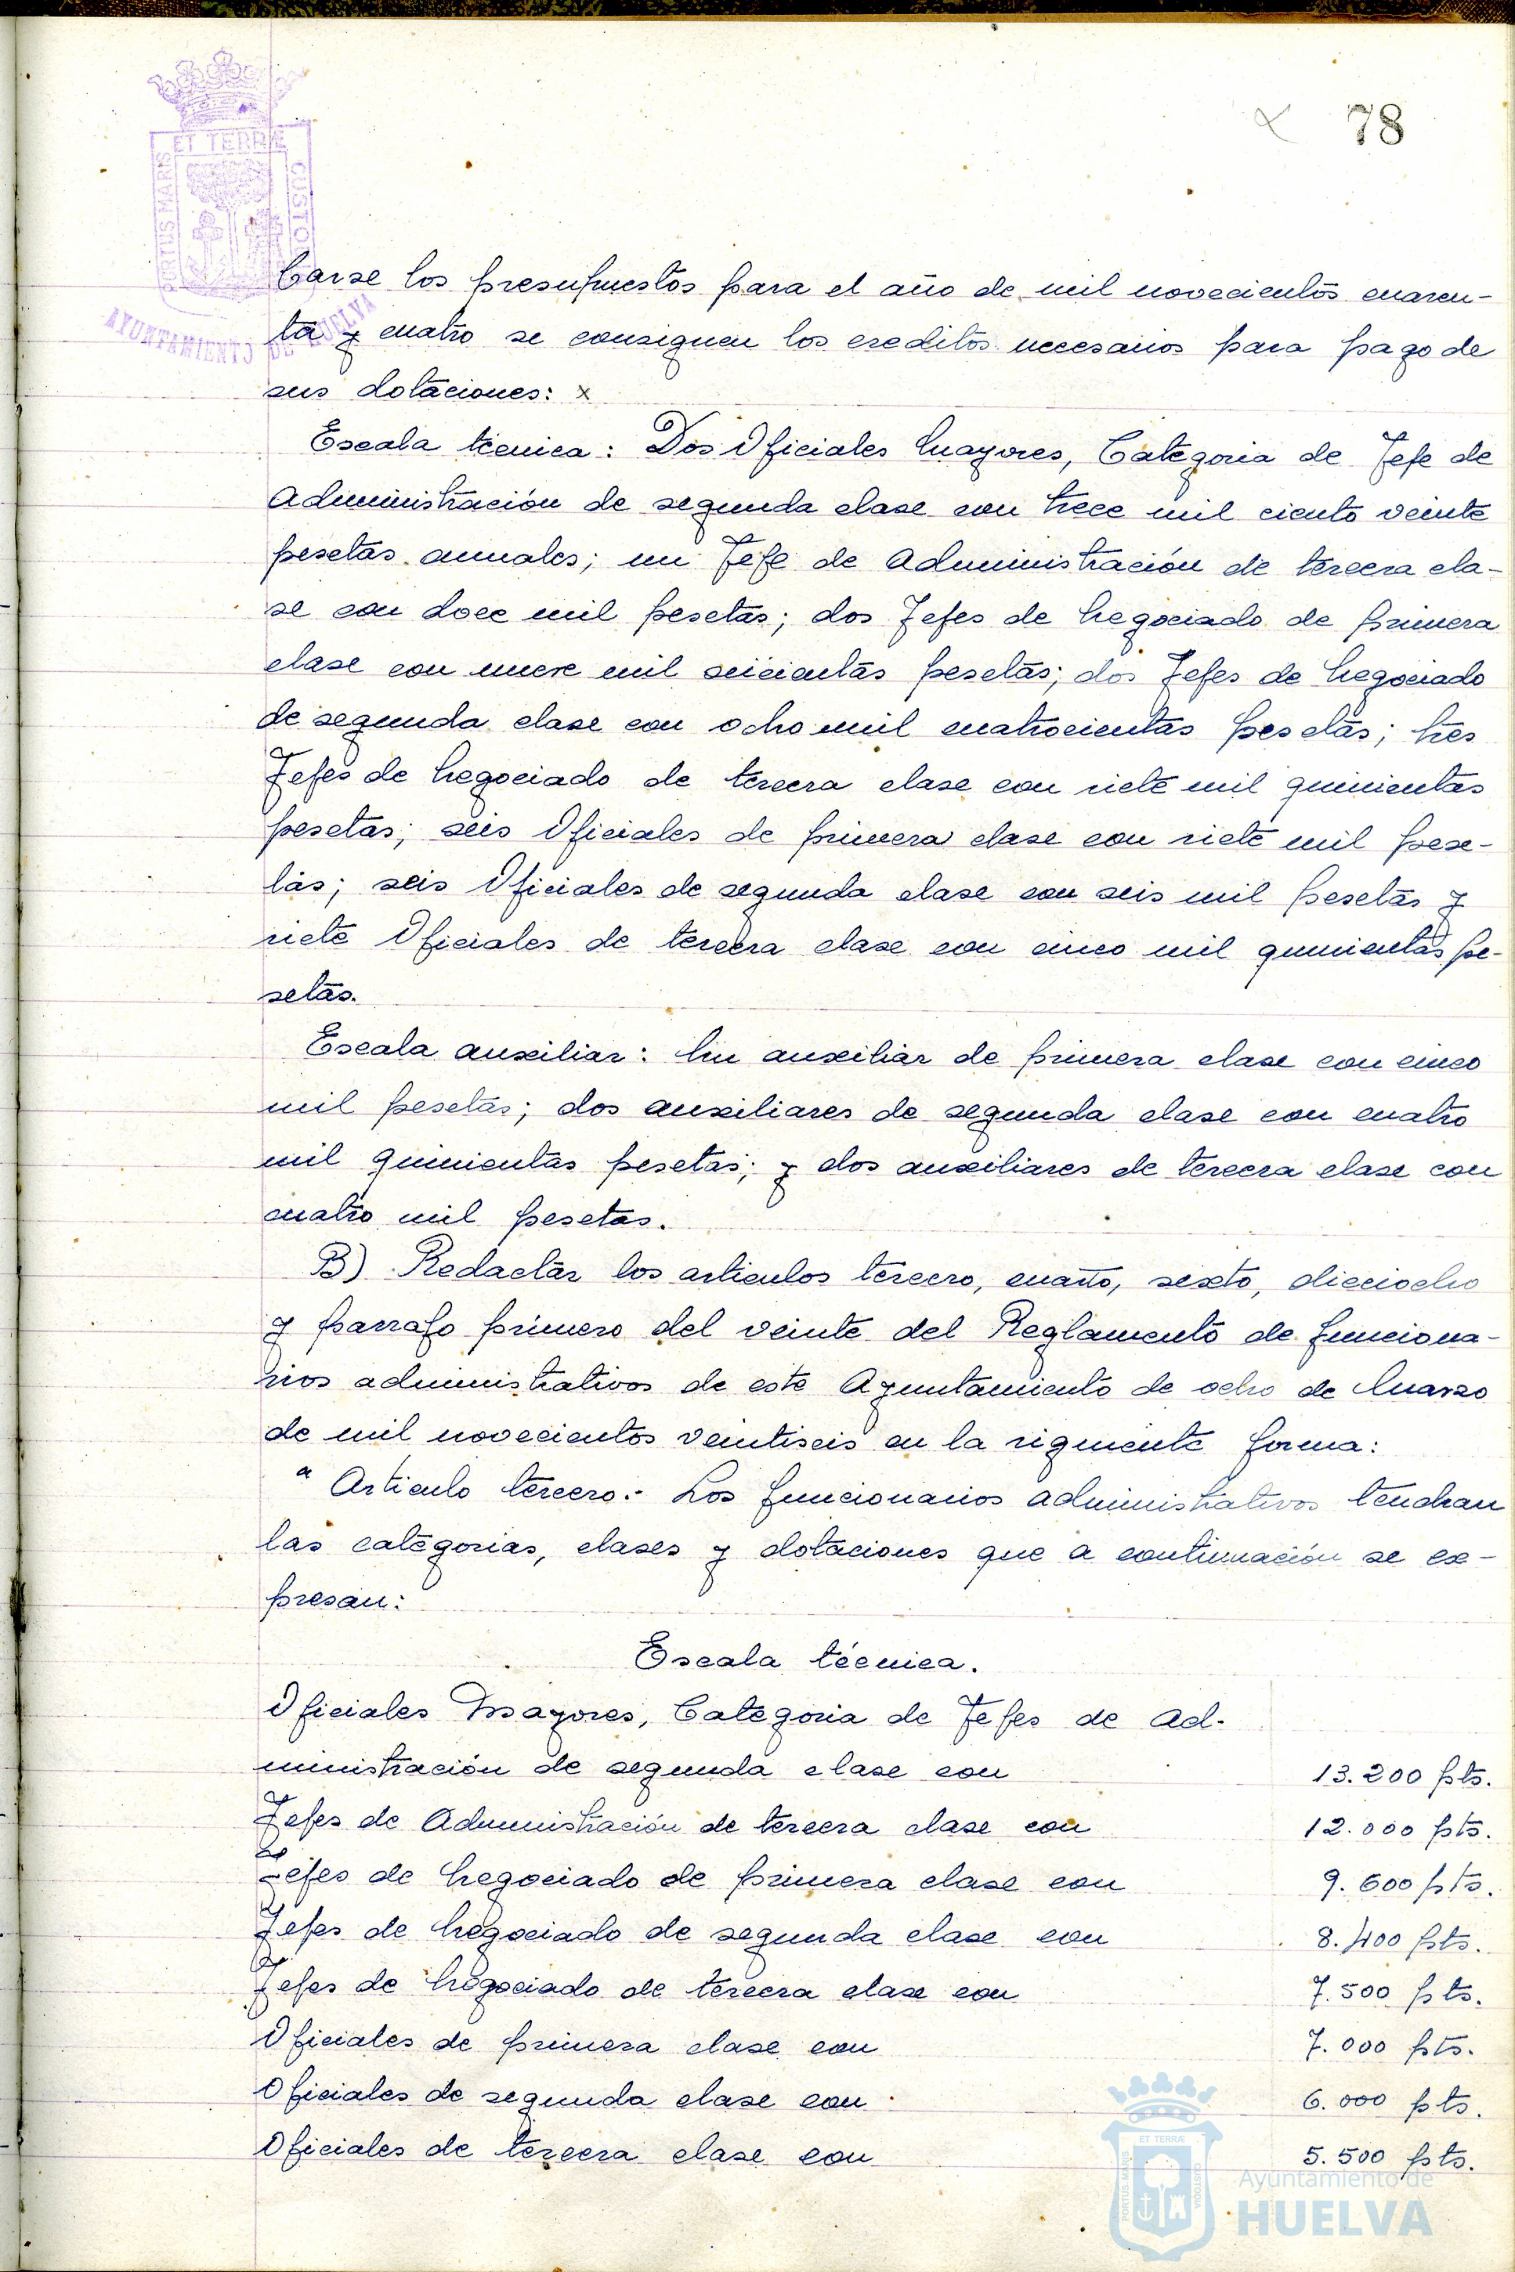 78
ET TERRÆ
PORTUS MARIS
CUSTODIA
AYUNTAMIENTO DE HUELVA
carse los presupuestos para el año de mil novecientos cuaren-
ta y cuatro se consignen los creditos necesarios para pago de
sus dotaciones: x
Escala técnica: Dos Oficiales Mayores, Categoria de Jefe de
Administración de segunda clase con trece mil ciento veinte
pesetas anuales; un Jefe de Administración de tercera cla-
se con doce mil pesetas; dos Jefes de Negociado de primera
clase con nueve mil seicientas pesetas; dos Jefes de Negociado
de segunda clase con ocho mil cuatrocientas pesetas; tres
Jefes de Negociado de tercera clase con siete mil quinientas
pesetas; seis Oficiales de primera clase con siete mil pese-
tas; seis Oficiales de segunda clase con seis mil pesetas y
siete Oficiales de tercera clase con cinco mil quinientas pe-
setas.
Escala auxiliar: Un auxiliar de primera clase con cinco
mil pesetas; dos auxiliares de segunda clase con cuatro
mil quinientas pesetas; y dos auxiliares de tercera clase con
cuatro mil pesetas.
B) Redactar los articulos tercero, cuarto, sexto, dieciocho
y parrafo primero del veinte del Reglamento de funciona-
rios administrativos de este Ayuntamiento de ocho de Marzo
de mil novecientos veintiseis en la siguiente forma:
" Articulo tercero.- Los funcionarios administrativos tendran
las categorias, clases y dotaciones que a continuación se ex-
presan:
Escala técnica.
Oficiales Mayores, Categoria de Jefes de Ad-
ministración de segunda clase con 13.200 pts.
Jefes de Administración de tercera clase con 12.000 pts.
Jefes de Negociado de primera clase con 9.600 pts.
Jefes de Negociado de segunda clase con 8.400 pts.
Jefes de Negociado de tercera clase con 7.500 pts.
Oficiales de primera clase con 7.000 pts.
Oficiales de segunda clase con 6.000 pts.
Oficiales de tercera clase con 5.500 pts.
ET TERRÆ
PORTUS MARIS
CUSTODIA
Ayuntamiento de
HUELVA